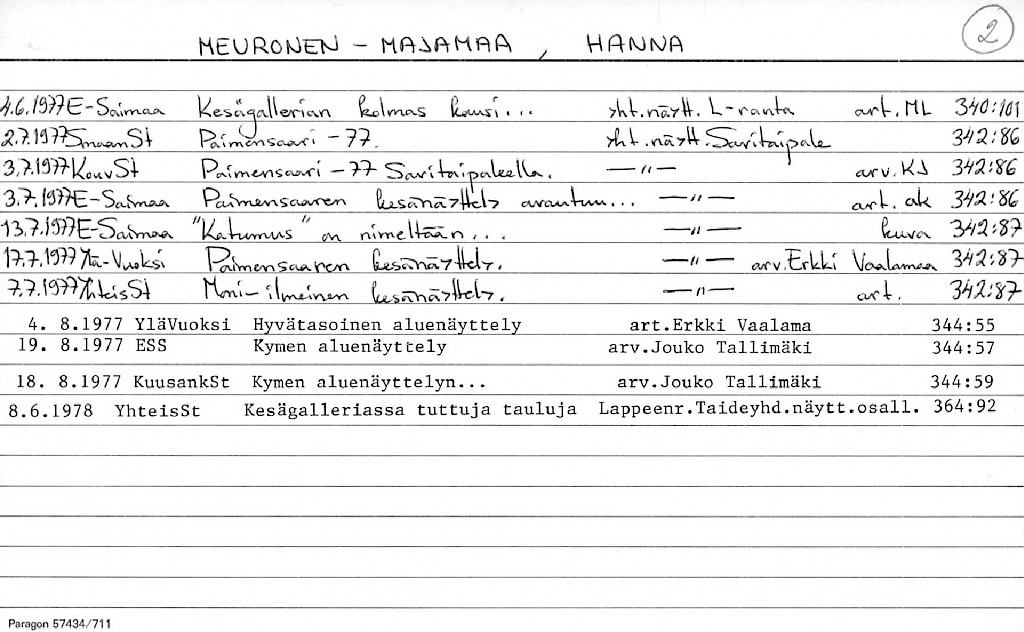 2
MEURONEN - MAJAMAA, HANNA
4.6.1977 E-Saimaa Kesägallerian kolmas kausi... yht.näytt. L-ranta art. ML 340:101
2.7.1977 SmaanSt Paimensaari -77. yht.näytt. Savitaipale 342:86
3.7.1977 KouvSt Paimensaari -77 Savitaipaleella. —"— arv. KJ 342:86
3.7.1977 E-Saimaa Paimensaaren kesänäyttely avautuu... —"— art. ak 342:86
13.7.1977 E-Saimaa "Katumus" on nimeltään... —"— kuva 342:87
17.7.1977 Ylä-Vuoksi Paimensaaren kesänäyttely. —"— arv. Erkki Vaalamaa 342:87
7.7.1977 YhteisSt Moni-ilmeinen kesänäyttely. —"— art. 342:87
4. 8.1977 YläVuoksi Hyvätasoinen aluenäyttely art.Erkki Vaalama 344:55
19. 8.1977 ESS Kymen aluenäyttely arv.Jouko Tallimäki 344:57
18. 8.1977 KuusankSt Kymen aluenäyttelyn... arv.Jouko Tallimäki 344:59
8.6.1978 YhteisSt Kesägalleriassa tuttuja tauluja Lappeenr.Taideyhd.näytt.osall. 364:92
Paragon 57434/711